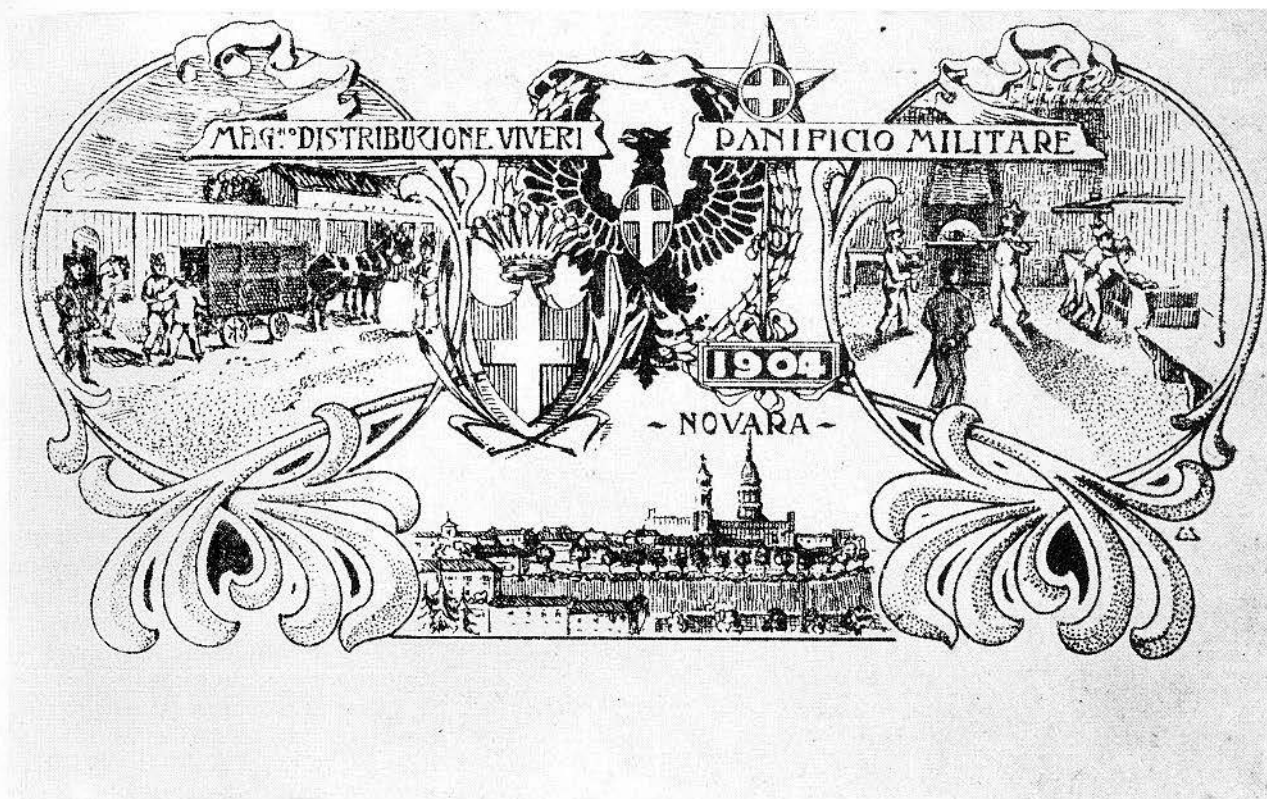 MAG.no DISTRIBUZIONE VIVERI
PANIFICIO MILITARE
1904
~ NOVARA ~